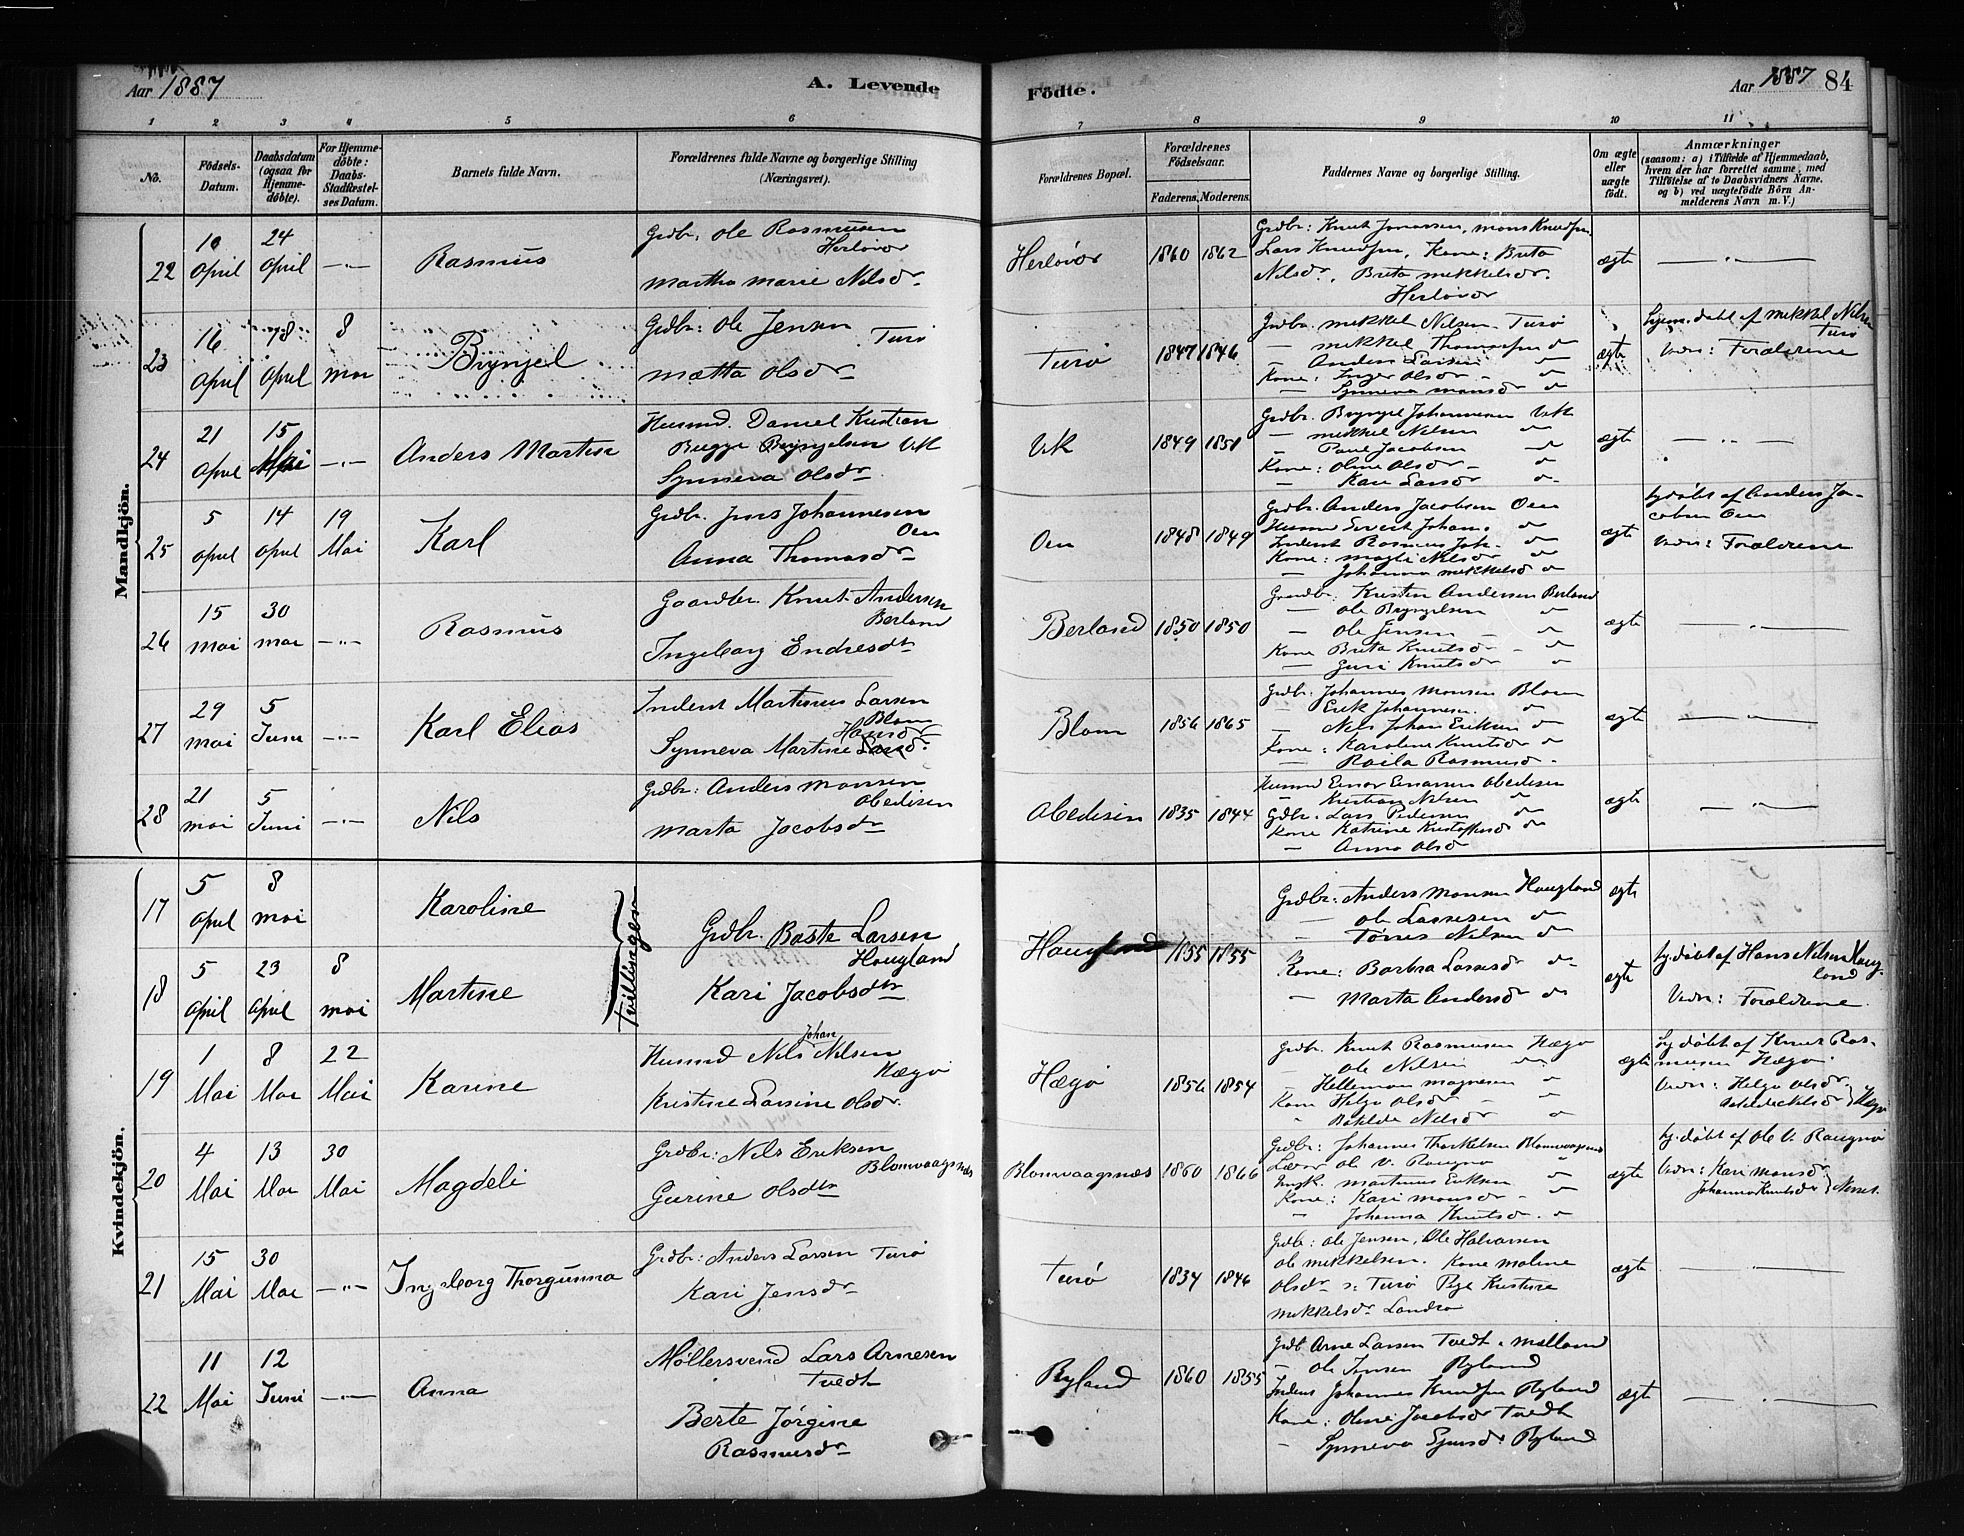 Aar 1887
A. Levende
Födte.
Aar 1887 84
1 2 3 4 5 6 7 8 9 10 11
No.
Födsels-
Datum.
Daabsdatum
(ogsaa for
Hjemme-
döbte).
For Hjemme-
döbte:
Daabs-
Stadfæstel-
ses Datum.
Barnets fulde Navn.
Forældrenes fulde Navne og borgerlige Stilling
(Næringsvei).
Forældrenes Bopæl.
Forældrenes
Födselsaar.
Faderens, Moderens.
Faddernes Navne og borgerlige Stilling.
Om ægte
eller
uægte
födt.
Anmærkninger
(saasom: a) i Tilfælde af Hjemmedaab,
hvem der har forrettet samme, med
Tilföielse af to Daabsvidners Navne,
og b) ved uægtefödte Börn An-
melderens Navn m. V.)
Mandkjön.
22 10 April 24 April —"— Rasmus
Grdbr: Ole Rasmussen
Herløvør
Martha Marie Nilsdr
Herløvør 1860 1862
Grdbr: Knut Jonassen, Mons Knudsen,
Lars Knudsen, Kone: Brita
Nilsdr, Brita Mikkelsdr
Herløvør
ægte —"—
23 16 April 18 April 8 Mai Brynjel
Grdbr: Ole Jensen
Turø
Mætta Olsdr
Turø 1847 1846
Grdbr. Mikkel Nilsen Turø
— Mikkel Thomassen do
— Anders Larsen do
Kone: Inger Olsdr - do
— Synneva Monsdr do
ægte
hjem. døbt af Mikkel Nilsen
Turø
Vidn: Forældrene
24 21 April 15 Mai —"— Anders Martin
Husmd. Daniel Kristian
Brügge Bryngelsen Vik
Synneva Olsdr
Vik 1849 1851
Grdbr. Bryngel Johannesen Vik
— Mikkel Nilsen do
— Paul Jacobsen do
Kone: Oline Olsdr - do
— Kari Larsdr do
ægte —"—
25 5 April 14 April 19 Mai Karl
Grdbr. Jens Johannesen
Oen
Anna Thomasdr
Oen 1848 1849
Grdbr. Anders Jacobsen Oen
Husmd Sivert Johans. do
Inderst Rasmus Joh. do
Kone: Magli Nilsdr do
— Johanna Mikkelsd do
ægte
hj. døbt af Anders Ja-
cobsen Oen
Vidn: Forældrene
26 15 Mai 30 Mai —"— Rasmus
Gaardbr Knut Andersen
Berland
Ingeborg Endresdtr
Berland 1850 1850
Grandbr. Kristen Andersen Berland
— Ole Bryngelsen do
— Ole Jensen - do
Kone Brita Knutsdr - do
— Guri Knutsdr do
ægte —"—
27 29 Mai 5 Juni —"— Karl Elias
Inderst Martinus Larsen
Blom
Hansdr
Synneva Martine Larsd.
Blom 1856 1865
Grdbr. Johannes Monsen Blom
— Erik Johannesen. do
— Nils Johan Eriksen do
Kone: Karoline Knutsdr do
— Raila Rasmusd -
ægte —"—
28 21 Mai 5 Juni —"— Nils
Grdbr: Anders Monsen
Obedisen
Marta Jacobsdr
Obedisen 1835 1844
Husmd Einar Einarsen Obedisen
— Kristian Nilsen do
Gdbr. Lars Pedersen do
Kone Katrine Kristoffersd do
— Anna Olsd
ægte —"—
Kvindekjön.
17 5 April 8 Mai Karoline
Tvillinger
Grdbr. Baste Larsen
Hougland
Kari Jacobsdtr
Hougland 1855 1855
Grdbr: Anders Monsen Hougland
— Ole Lassesen do
— Tørres Nilsen do
ægte
18 5 April 23 April 8 Mai Martine
Kone: Barbra Lassesdr do
— Marta Andersdr do
ægte
hj. døbt af Hans Nilsen Houg-
land
Vidn: Forældrene.
19 1 Mai 8 Mai 22 Mai Karine
Johan
Husmd Nils Nilsen
Hægø
Kristine Larsine Olsdr
Hægø 1856 1854
Grdbr. Knut Rasmusen Hægø
— Ole Nilsen do
— Helleman Magnesen do
Kone Helga Olsdr - do
" Botilde Nilsdr do
ægte
hj. døbt af Knut Ras-
musen Hægø.
Vidn: Helga Olsdr
Botilde Nilsdr } Hægø
20 4 Mai 13 Mai 30 Mai Magdeli
Grdbr: Nils Eriksen
Blomvaagsnæs
Gurine Olsdtr
Blomvaagsnæs 1860 1866
Grdbr: Johannes Thorkelsen Blomvaagsnæs
Lærer Ole V. Raugnø "
Ungk. Martinus Eriksen do
Kone: Kari Monsdr - do
" Johanna Knutsd. do
ægte
hj. døbt af Ole V. Raugnø
Vidn: Kari Monsdr
Johanna Knutsdr } Næsset.
21 15 Mai 30 Mai —"— Ingeborg Thorgunna
Grdbr: Anders Larsen Turø
Kari Jensdr
Turø 1834 1846
Grdbr: Ole Jensen, Ole Halvorsen
Ole Mikkelsen. Kone Maline
Olsdr s: Turø Pige Kristine
Mikkelsdr Landrø
ægte —"—
22 11 Mai 12 Juni —"— Anna
Møllersvend Lars Arnesen
Tvedt
Berte Jørgine
Rasmusdr
Ryland 1860 1855
Grdb Arne Larsen Tvedt i Melland
— Ole Jensen Ryland
Inders Johannes Knudsen Ryland
Kone: Oline Jacobsdr Tvedt
— Synneva Ejensdr Ryland
ægte —"—